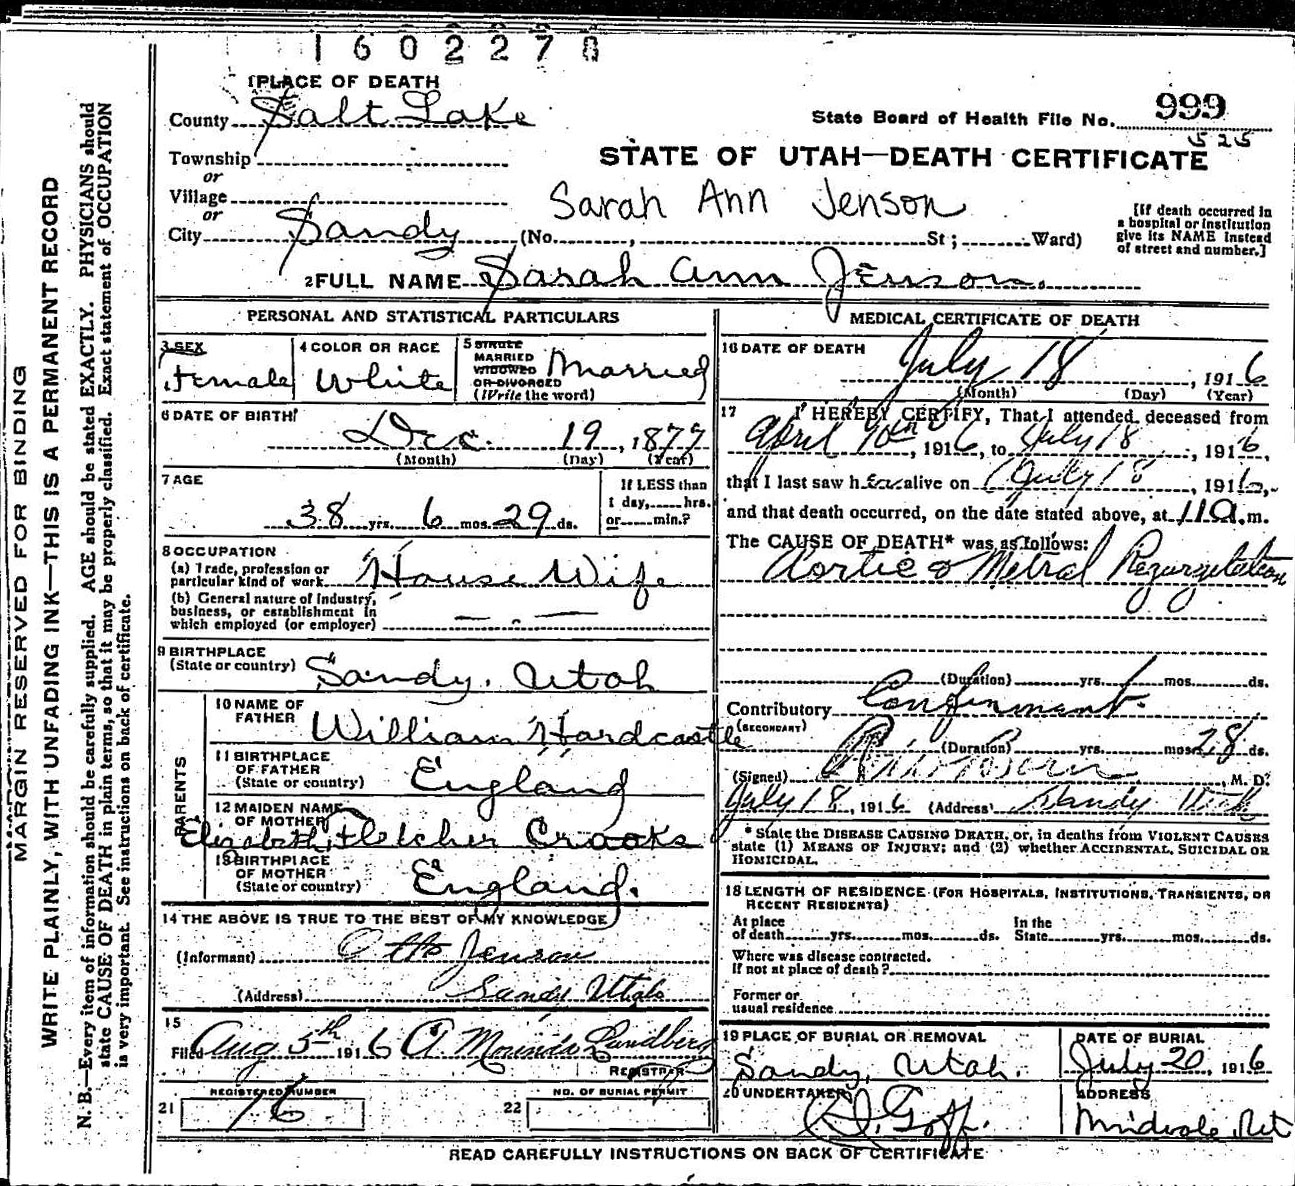 1602278
1 PLACE OF DEATH
County Salt Lake
State Board of Health File No. 999
525
Township
or
STATE OF UTAH—DEATH CERTIFICATE
Village
or
Sarah Ann Jenson
City Sandy (No. , St ; Ward)
[If death occurred in
a hospital or institution
give its NAME instead
of street and number.]
2 FULL NAME Sarah Ann Jenson.
PERSONAL AND STATISTICAL PARTICULARS
3 SEX
Female
4 COLOR OR RACE
White
5 SINGLE
MARRIED
WIDOWED
OR DIVORCED
(Write the word)
Married
6 DATE OF BIRTH
Dec. 19, 1877
(Month) (Day) (Year)
7 AGE
38 yrs. 6 mos. 29 ds.
If LESS than
1 day, hrs.
or min.?
8 OCCUPATION
(a) Trade, profession or
particular kind of work House Wife
(b) General nature of industry,
business, or establishment in
which employed (or employer)
9 BIRTHPLACE
(State or country) Sandy. Utah
PARENTS
10 NAME OF
FATHER William Hardcastle
11 BIRTHPLACE
OF FATHER
(State or country) England
12 MAIDEN NAME
OF MOTHER
Elizabeth Fletcher Crooks
13 BIRTHPLACE
OF MOTHER
(State or country) England.
14 THE ABOVE IS TRUE TO THE BEST OF MY KNOWLEDGE
(Informant) Otto Jenson
(Address) Sandy Utah
15
Filed Aug 5th 1916 A. Lundberg
REGISTRAR
REGISTERED NUMBER
21 76
NO. OF BURIAL PERMIT
22
MEDICAL CERTIFICATE OF DEATH
16 DATE OF DEATH
July 18, 1916
(Month) (Day) (Year)
17 I HEREBY CERTIFY, That I attended deceased from
April 10th, 1916, to July 18, 1916,
that I last saw her alive on July 18, 1916,
and that death occurred, on the date stated above, at 11 a.m.
The CAUSE OF DEATH* was as follows:
Aortic & Metral Regurgitation
(Duration) yrs. mos. ds.
Contributory Confinment.
(SECONDARY)
(Duration) yrs. mos. 28 ds.
(Signed) M. D.
July 18, 1916 (Address) Sandy Utah
* State the DISEASE CAUSING DEATH, or, in deaths from VIOLENT CAUSES
state (1) MEANS OF INJURY; and (2) whether ACCIDENTAL, SUICIDAL OR
HOMICIDAL.
18 LENGTH OF RESIDENCE (FOR HOSPITALS, INSTITUTIONS, TRANSIENTS, OR
RECENT RESIDENTS)
At place
of death yrs. mos. ds.
In the
State yrs. mos. ds.
Where was disease contracted.
If not at place of death?
Former or
usual residence
19 PLACE OF BURIAL OR REMOVAL
Sandy, Utah.
DATE OF BURIAL
July 20, 1916
20 UNDERTAKER
Goff.
ADDRESS
Midvale, Ut
READ CAREFULLY INSTRUCTIONS ON BACK OF CERTIFICATE
MARGIN RESERVED FOR BINDING
WRITE PLAINLY, WITH UNFADING INK—THIS IS A PERMANENT RECORD
N. B.—Every item of information should be carefully supplied. AGE should be stated EXACTLY. PHYSICIANS should
state CAUSE OF DEATH in plain terms, so that it may be properly classified. Exact statement of OCCUPATION
is very important. See instructions on back of certificate.